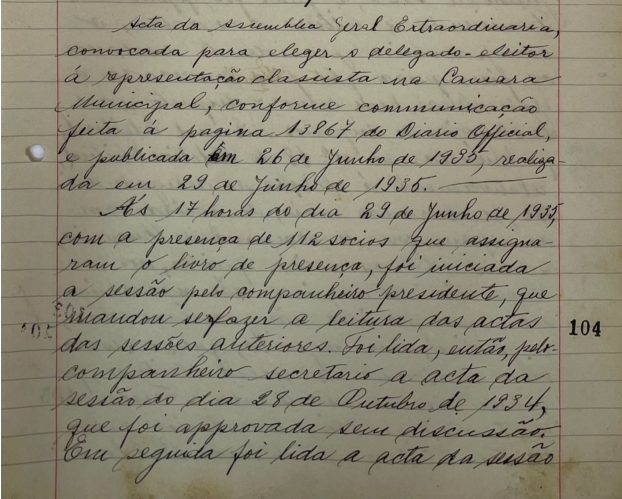 Acta da Assemblea Geral Extraordinaria,
convocada para eleger o delegado-eleitor
á representação classista na Camara
Municipal, conforme communicação
feita á pagina 13867 do Diario Official,
e publicada em 26 de Junho de 1935, realiza-
da em 29 de Junho de 1935.
Ás 17 horas do dia 29 de Junho de 1935,
com a presença de 112 socios que assigna-
ram o livro de presença, foi iniciada
a sessão pelo companheiro presidente, que
mandou se fazer a leitura das actas
104
das sessões anteriores. Foi lida, então, pelo
companheiro secretario a acta da
sessão do dia 28 de Outubro de 1934,
que foi approvada sem discussão.
Em seguida foi lida a acta da sessão